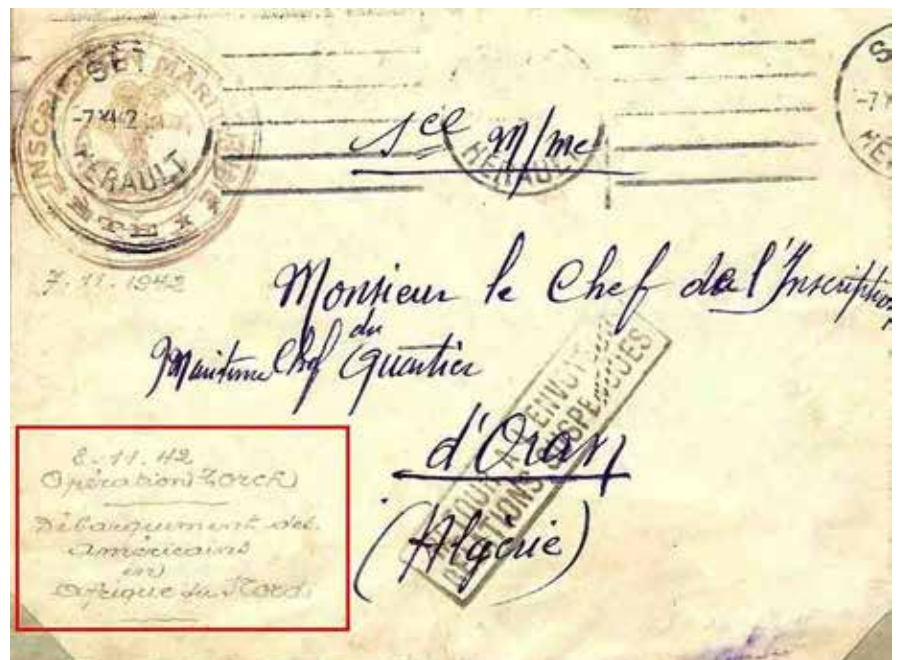 SETE
-7 XI 42
HERAULT
INSCRIPTION MARITIME
-7 XI
HERAULT
Sce M/me
7.11.1942
Monsieur le Chef de l'Inscription
Maritime Chef du Quartier
d'Oran
(Algérie)
RETOUR A L'ENVOYEUR
RELATIONS SUSPENDUES
8.11.42
Opération Torch
Débarquement des
Américains
en
Afrique du Nord